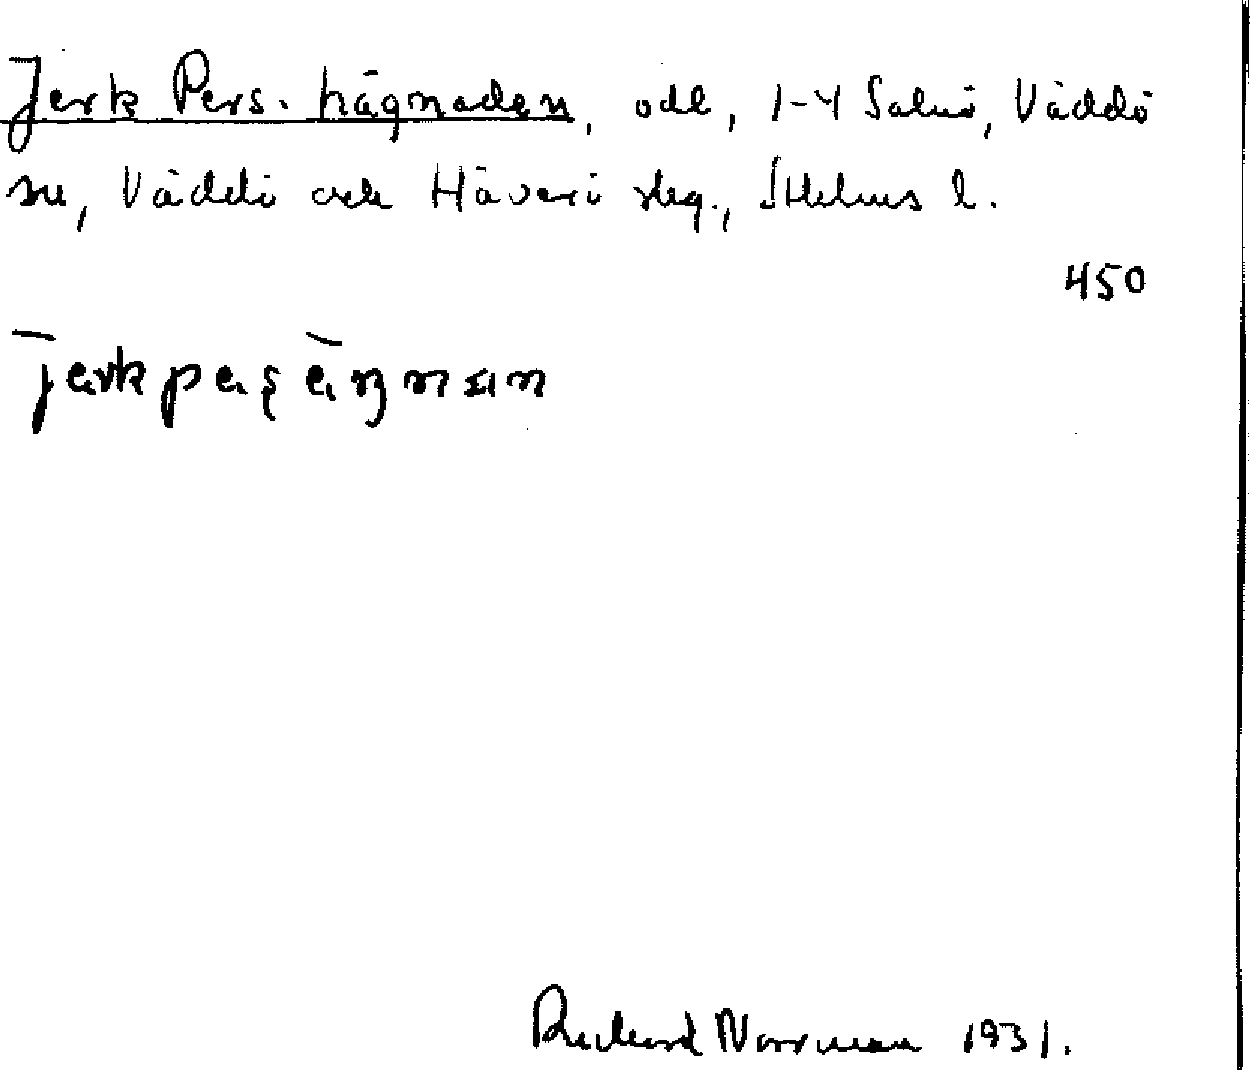 Jerk Pers. hägnaden, odl, 1-4 Salnö, Väddö
sn, Väddö och Häverö skg., Sthlms l.
450
jerkpeʂ ängnan
Richard Norrman 1931.